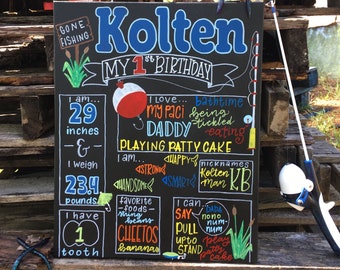 GONE
FISHING
Kolten
MY 1st BIRTHDAY
I am...
29
inches
&
I weigh
23.4
pounds
I have
1
tooth
I love...
my paci
DADDY
bathtime
being
tickled
eating
PLAYING PATTY CAKE
I am...
HAPPY
STRONG
HANDSOME
SMART
nicknames
Kolten
man
KB
favorite
-foods-
green
beans
CHEETOS
bananas
I can:
SAY
PULL
UP TO
STAND
dada
nono
num-
num
play
patty
cake